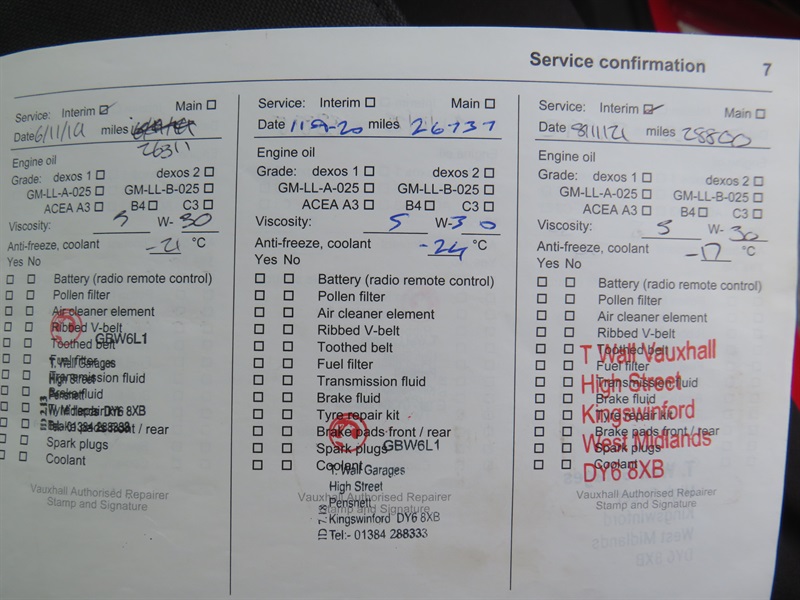 Service confirmation 7
Service: Interim Main
Date 6/11/19 miles
26311
Engine oil
Grade: dexos 1 dexos 2
GM-LL-A-025 GM-LL-B-025
ACEA A3 B4 C3
Viscosity: 5 W- 30
Anti-freeze, coolant -21 °C
Yes No
Battery (radio remote control)
Pollen filter
Air cleaner element
Ribbed V-belt
Toothed belt
Fuel filter
Transmission fluid
Brake fluid
Tyre repair kit
Brake pads front / rear
Spark plugs
Coolant
GBW6L1
T. Wall Garages
High Street
Pensnett
DY6 8XB
Tel:- 01384 288333
Vauxhall Authorised Repairer
Stamp and Signature
Service: Interim Main
Date 11-9-20 miles 26737
Engine oil
Grade: dexos 1 dexos 2
GM-LL-A-025 GM-LL-B-025
ACEA A3 B4 C3
Viscosity: 5 W- 30
Anti-freeze, coolant -24 °C
Yes No
Battery (radio remote control)
Pollen filter
Air cleaner element
Ribbed V-belt
Toothed belt
Fuel filter
Transmission fluid
Brake fluid
Tyre repair kit
Brake pads front / rear
Spark plugs
Coolant
GBW6L1
T. Wall Garages
High Street
Pensnett
Kingswinford DY6 8XB
Tel:- 01384 288333
Vauxhall Authorised Repairer
Stamp and Signature
Service: Interim Main
Date 8/11/21 miles 28800
Engine oil
Grade: dexos 1 dexos 2
GM-LL-A-025 GM-LL-B-025
ACEA A3 B4 C3
Viscosity: 5 W- 30
Anti-freeze, coolant -17 °C
Yes No
Battery (radio remote control)
Pollen filter
Air cleaner element
Ribbed V-belt
Toothed belt
Fuel filter
Transmission fluid
Brake fluid
Tyre repair kit
Brake pads front / rear
Spark plugs
Coolant
T Wall Vauxhall
High Street
Kingswinford
West Midlands
DY6 8XB
Vauxhall Authorised Repairer
Stamp and Signature